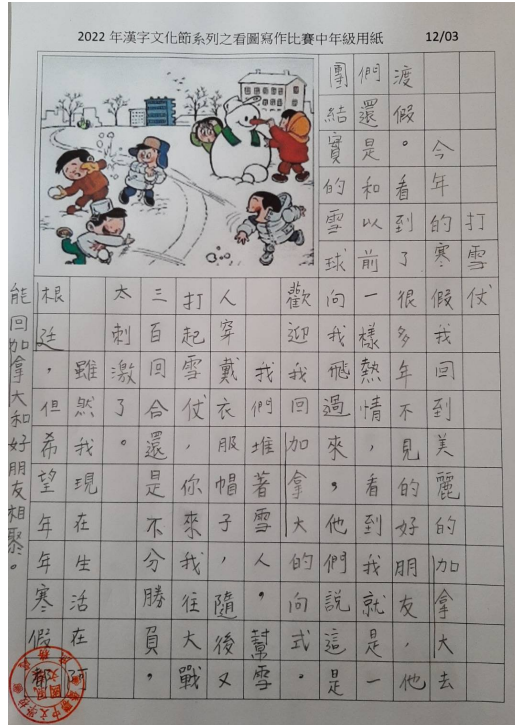 2022 年漢字文化節系列之看圖寫作比賽中年級用紙 12/03
打雪仗
今年的寒假我回到美麗的加拿大去
渡假。看到了很多年不見的好朋友,他
們還是和以前一樣熱情,看到我就是一
團結實的雪球向我飛過來,他們說這是
歡迎我回加拿大的向式。
我們堆著雪人,幫雪
人穿戴衣服帽子,隨後又
打起雪仗,你來我往大戰
三百回合還是不分勝負,
太刺激了。
雖然我現在生活在阿
根廷,但希望年年寒假都
能回加拿大和好朋友相聚。